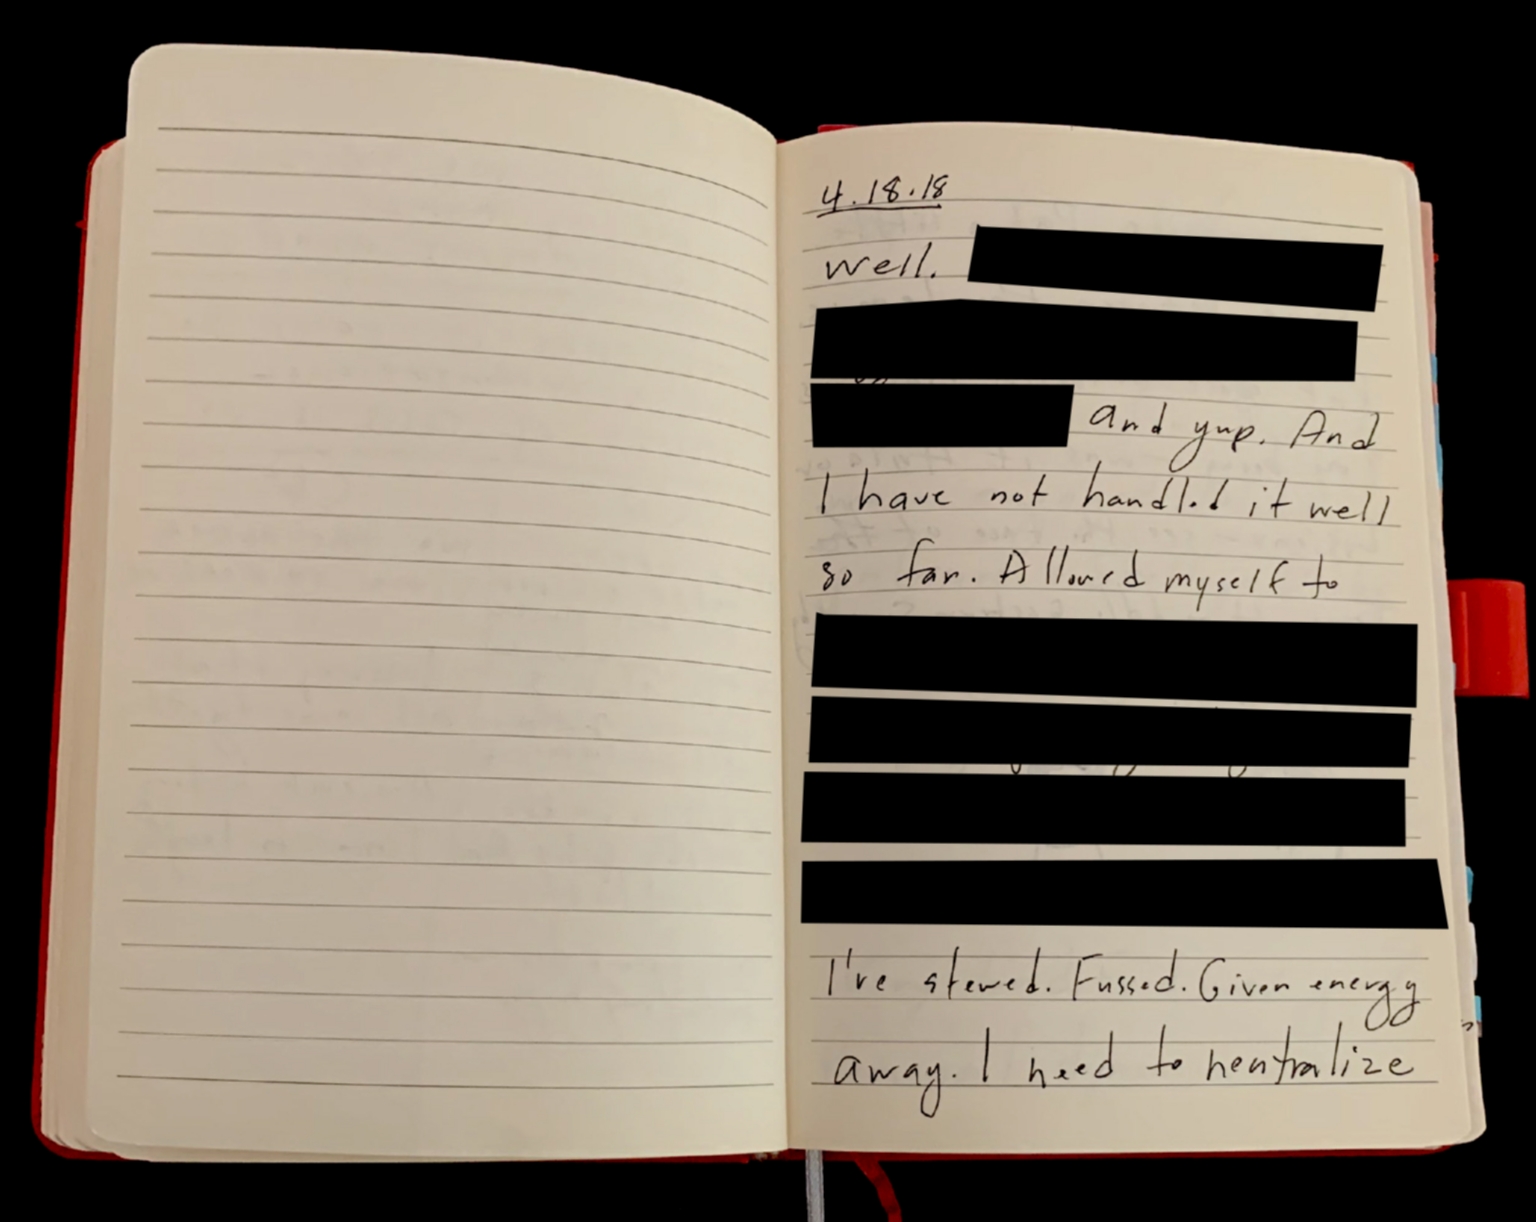 4.18.18
Well.
and yup. And
I have not handled it well
so far. Allowed myself to
I've stewed. Fussed. Given energy
away. I need to neutralize